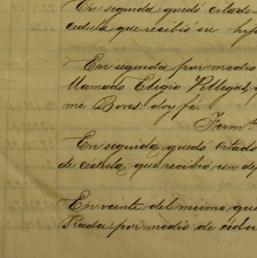 En seguida quedó citado
cedula que recibió su
En seguida por medio
llamado Eligio Villegas,
me Boves. doy fé.
Firm
En seguida quedó citado
de cedula, que recibió su
En veinte del mismo, que
Prada por medio de cedu